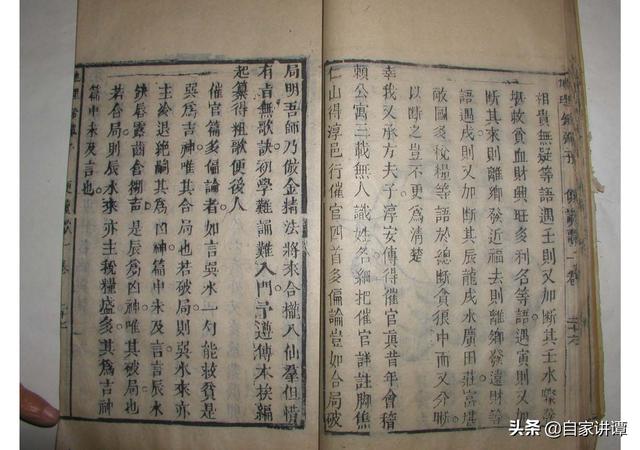 祖貴無疑等語遇壬則又加斷其壬水
堪救貧血財興旺多利名等語遇寅則又加
斷其寅來則離鄉發近福去則離鄉發遠財等
語遇戌則又加斷其辰龍戌水廣田莊富堪
敵國多稅糧等語於總斷貧狠中而又分斷
以斷之豈不更為清楚
幸我又承方夫子淳安傳得催官眞昔年會稽
賴公寓三載無人識姓名細把催官詳註脚僬
仁山得淳邑行催官四首多偏論豈如合局破
局明吾師乃倣金精法將來合攏八仙羣但惜
有書無歌訣初學難誦難入門予遵傳本挨編
起纂得祖歌便後人
催官篇多偏論者如言巽水一勺能救貧是
巽為吉神唯其合局也若破局則巽水來亦
主淪退絶嗣其為凶神篇中未及言言辰水
缺唇露齒合
是辰為凶神唯其破局也
若合局則辰水來亦主稅糧盛多其為吉神
篇中未及言也
頭条 @自家讲谭